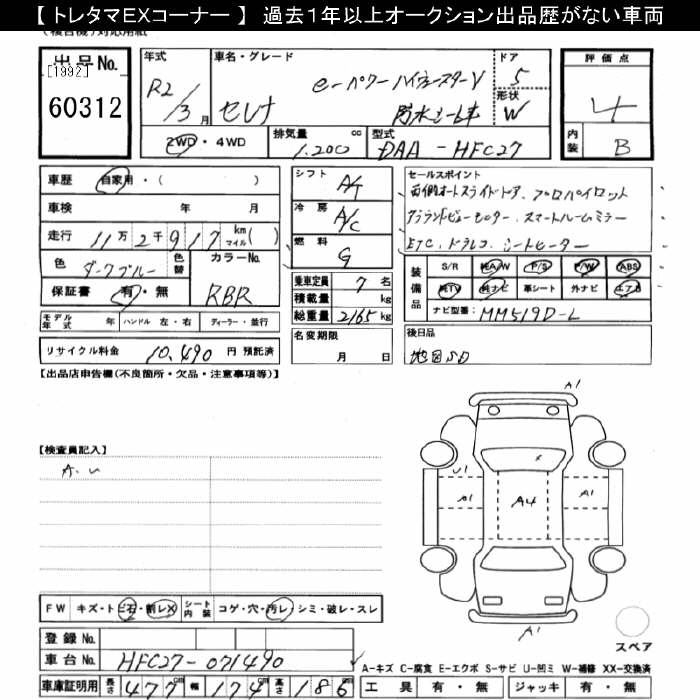 【 トレタマEXコーナー 】 過去1年以上オークション出品歴がない車両
出品No.
[1992]
60312
年式
R2/3月
車名・グレード
セレナ
e-パワー ハイウェースターV
防水シート車
ドア
5
形状
W
評価点
4
内装
B
2WD・4WD
排気量 cc
1.200
型式
DAA-HFC27
車歴 自家用・( )
車検 年 月
走行 11万2千917 km マイル( )
色 ダークブルー 色替
カラーNo.
RBR
保証書 有・無
モデル年式 年 ハンドル 左・右 ディーラー・並行
リサイクル料金 10,490 円 預託済
シフト A/T
冷房 A/C
燃料 G
乗車定員 7 名
積載量 kg
総重量 2165 kg
名変期限
月 日
セールスポイント
両側オートスライドドア、プロパイロット
アラウンドビューモニター、スマートルームミラー
ETC、ドラレコ、シートヒーター
装備品
S/R 純A/W P/S P/W ABS
純TV 純ナビ 革シート 外ナビ エアB
ナビ型番: MM519D-L
後日品
地図SD
【出品店申告欄(不良箇所・欠品・注意事項等)】
【検査員記入】
A.U
A1
U1
A1
A4
A1
A1
スペア
FW キズ・トビ石・割レX シート内装 コゲ・穴・汚レ・シミ・破レ・スレ
登録No.
車台No. HFC27-071490
車庫証明用 長さ 477 cm 幅 174 cm 高さ 186 cm
A-キズ C-腐食 E-エクボ S-サビ U-凹ミ W-補修 XX-交換済
工具 有・無 ジャッキ 有・無